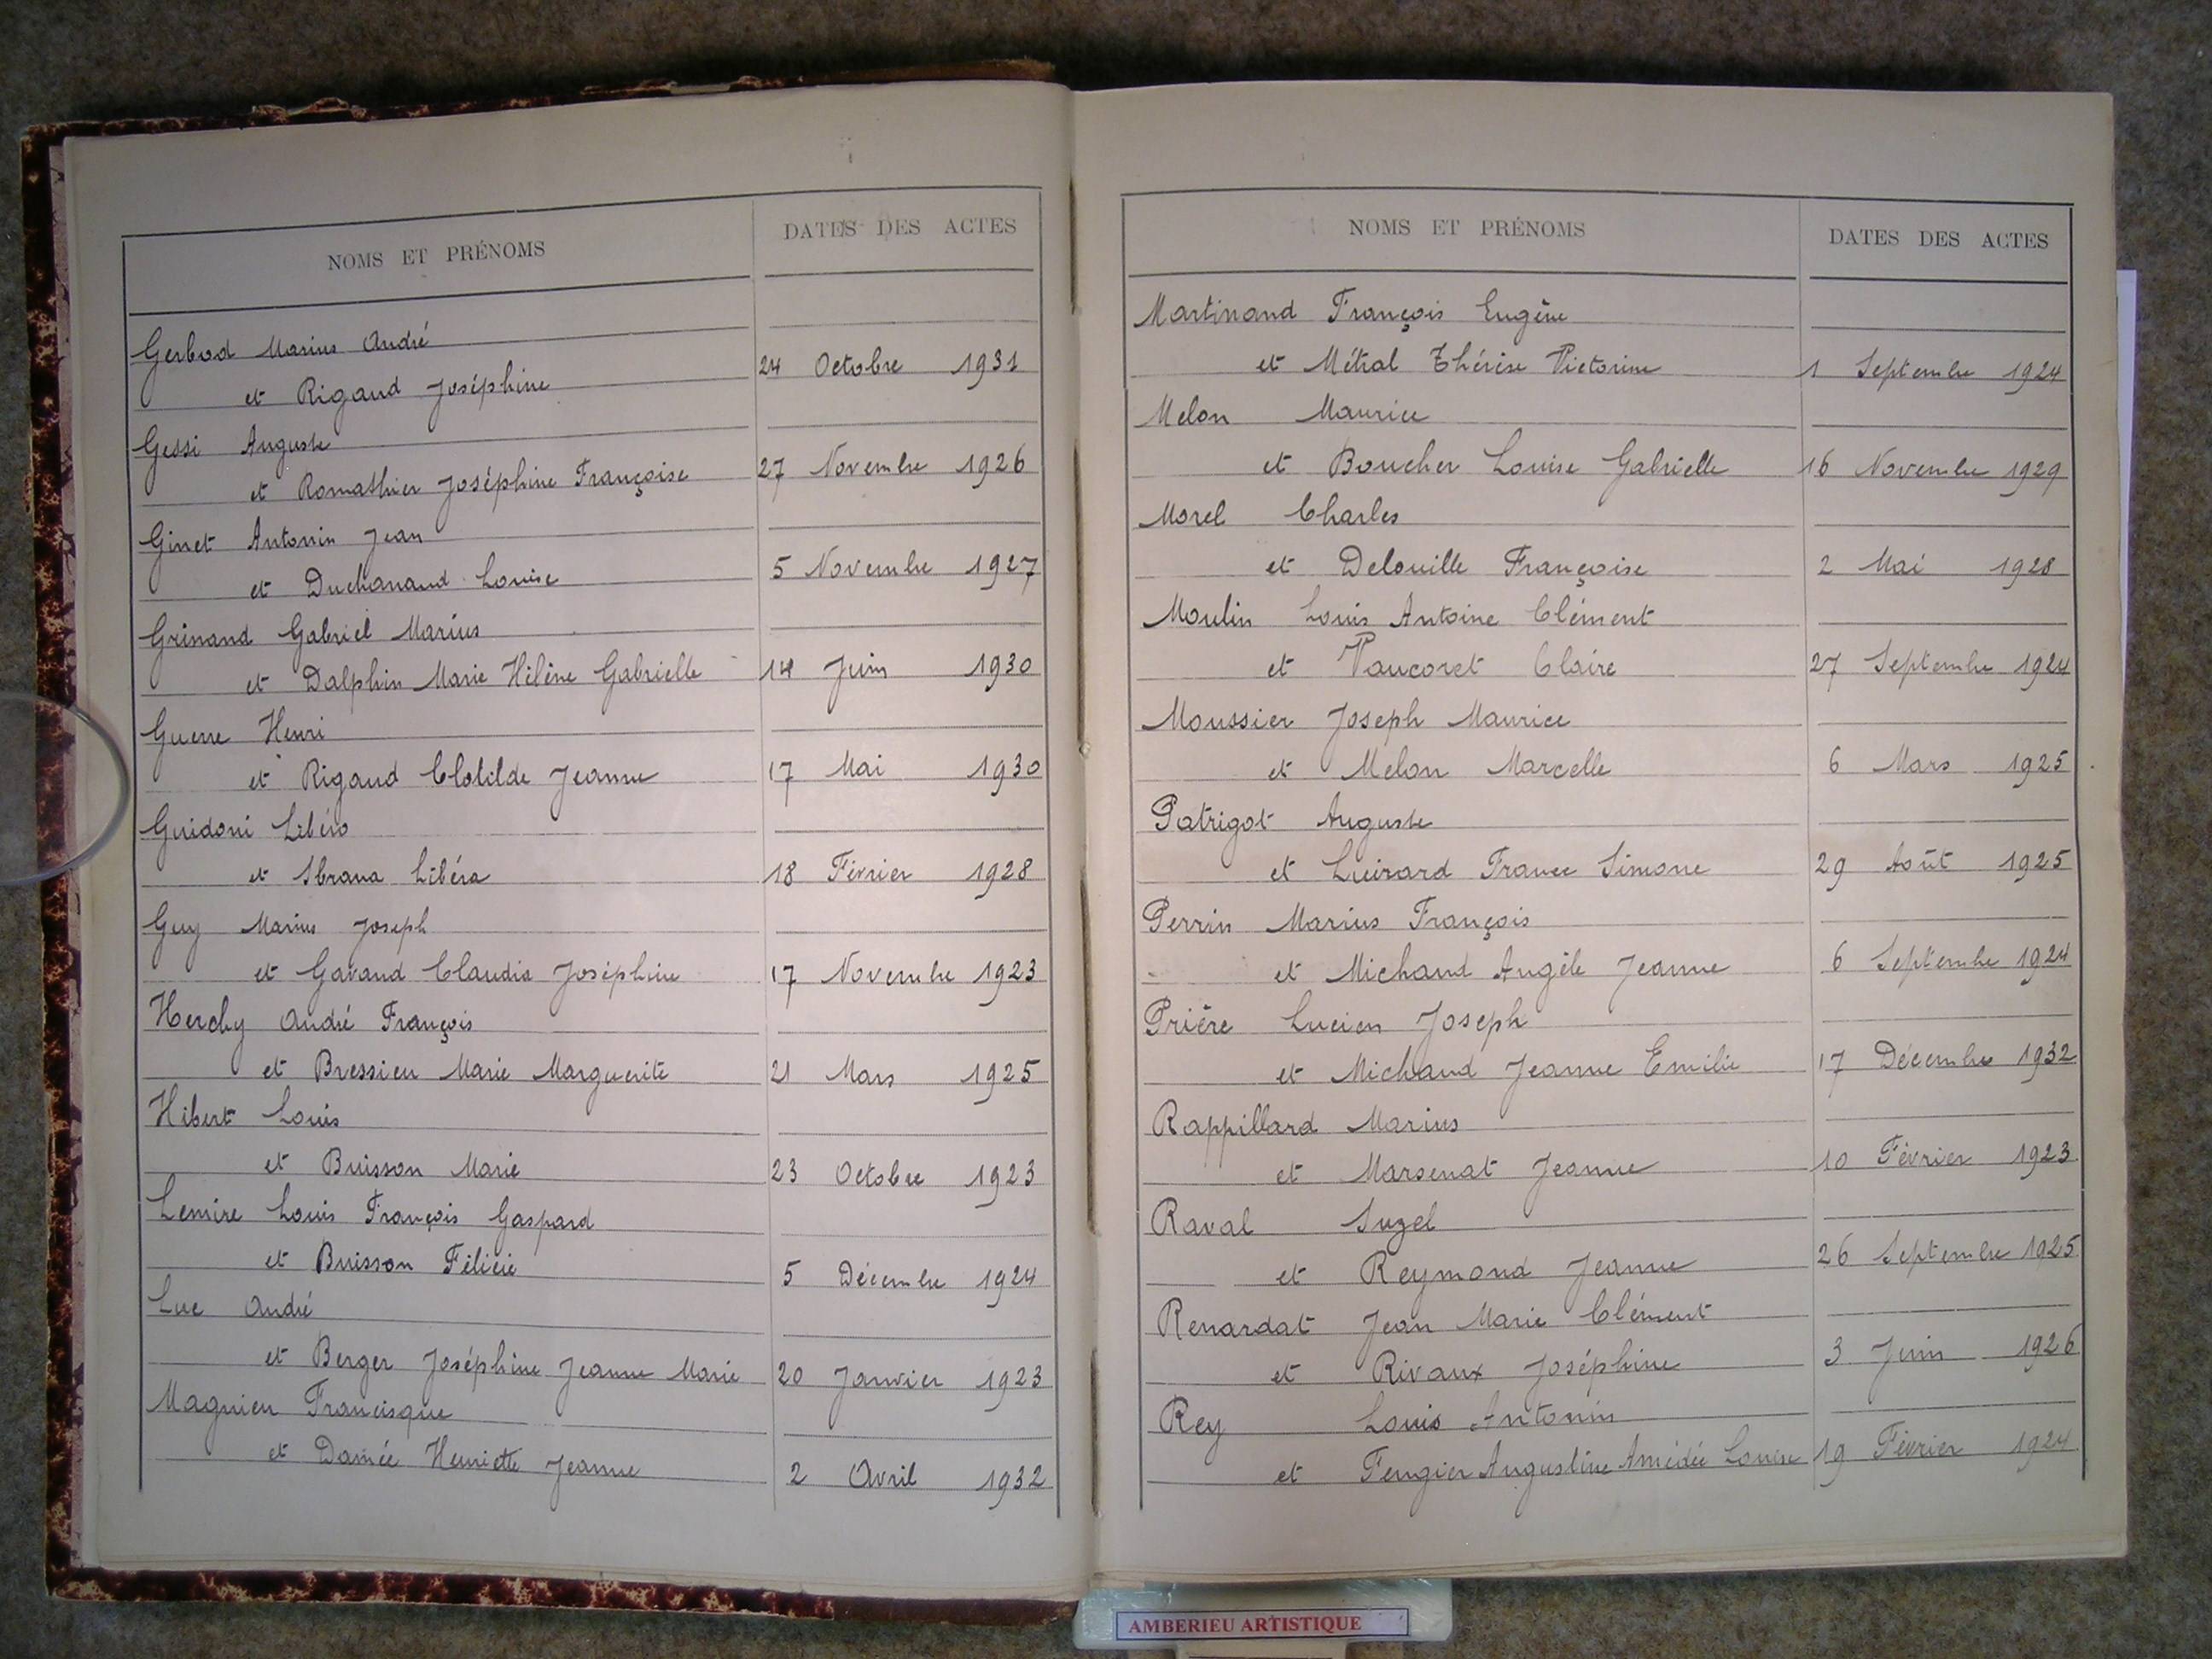 NOMS ET PRÉNOMS DATES DES ACTES
Gerbod Marius André
et Rigaud Joséphine 24 Octobre 1931
Gessi Auguste
et Romathier Joséphine Françoise 27 Novembre 1926
Ginet Antonin Jean
et Duchanaud Louise 5 Novembre 1927
Grinand Gabriel Marius
et Dalphin Marie Hélène Gabrielle 14 Juin 1930
Guerre Henri
et Rigaud Clotilde Jeanne 17 Mai 1930
Guidoni Libéro
et Sbrana Libéra 18 Février 1928
Guy Marius Joseph
et Gavand Claudia Joséphine 17 Novembre 1923
Herchy André François
et Bressieu Marie Marguerite 21 Mars 1925
Hibert Louis
et Buisson Marie 23 Octobre 1923
Lemire Louis François Gaspard
et Buisson Félicie 5 Décembre 1924
Luc André
et Berger Joséphine Jeanne Marie 20 Janvier 1923
Magnien Francisque
et Damée Henriette Jeanne 2 Avril 1932
NOMS ET PRÉNOMS DATES DES ACTES
Martinand François Eugène
et Métral Thérèse Victorine 1 Septembre 1924
Melon Maurice
et Boucher Louise Gabrielle 16 Novembre 1929
Morel Charles
et Delouille Françoise 2 Mai 1928
Moulin Louis Antoine Clément
et Vaucoret Claire 27 Septembre 1924
Moussier Joseph Maurice
et Melon Marcelle 6 Mars 1925
Patrigot Auguste
et France Simone 29 Août 1925
Perrin Marius François
et Michaud Angèle Jeanne 6 Septembre 1924
Prière Lucien Joseph
et Michaud Jeanne Emilie 17 Décembre 1932
Rappillard Marius
et Marsenat Jeanne 10 Février 1923
Raval Suzel
et Reymond Jeanne 26 Septembre 1925
Renardat Jean Marie Clément
et Rivaux Joséphine 3 Juin 1926
Rey Louis Antonin
et Feugier Augustine Amédée Louise 19 Février 1924
AMBERIEU ARTISTIQUE